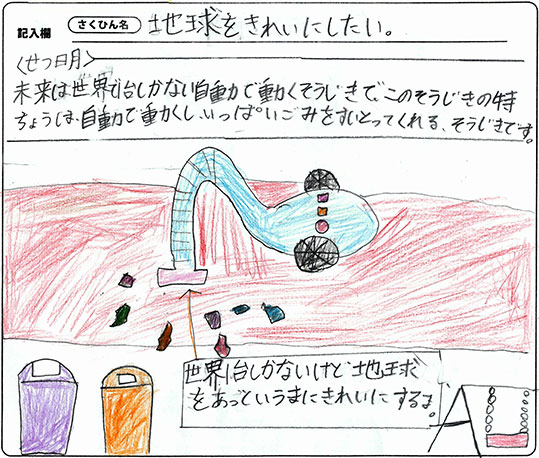 記入欄 さくひん名 地球をきれいにしたい。
〈せつ日月〉
未来は世界1台しかない自動力で動くそうじきで、このそうじきの特
ちょうは、自動力で動くし、いっぱいごみをすいとってくれる、そうじきです。
世界1台しかないけど地球
をあっというまにきれいにするよ。
AL